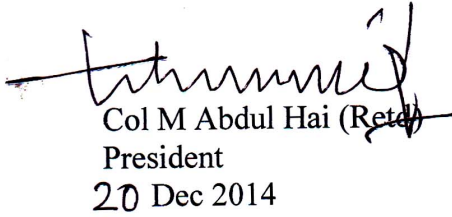 Col M Abdul Hai (Retd)
President
20 Dec 2014